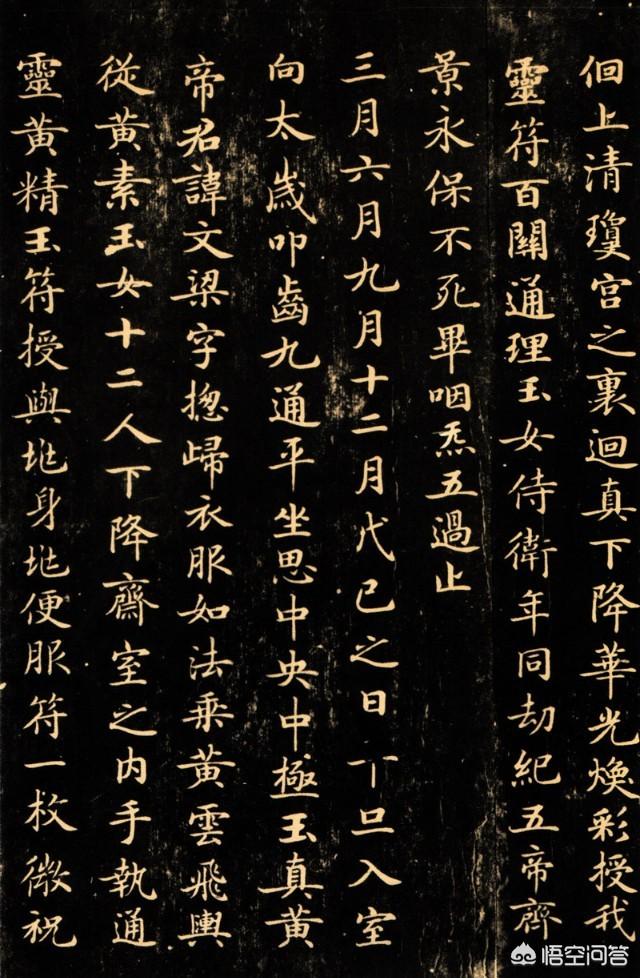 佪上清瓊宮之裏迴真下降華光煥彩授我
靈符百關通理玉女侍衛年同劫紀五帝齊
景永保不死畢咽炁五過止
三月六月九月十二月戊巳之日平旦入室
向太歲叩齒九通平坐思中央中極玉真黃
帝君諱文梁字揔歸衣服如法乘黃雲飛輿
從黃素玉女十二人下降齋室之內手執通
靈黃精玉符授與兆身兆便服符一枚微祝
悟空问答